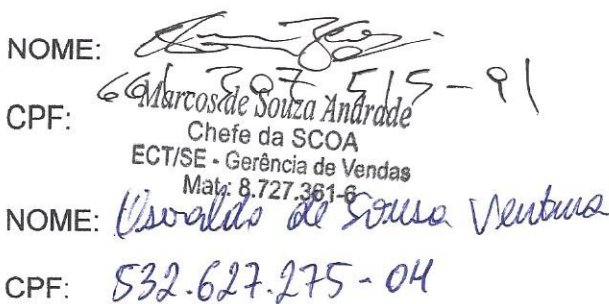 NOME:
CPF: 661.307.515-91
Marcos de Souza Andrade
Chefe da SCOA
ECT/SE - Gerência de Vendas
Mat.: 8.727.361-6
NOME: Osvaldo de Sousa Ventura
CPF: 532.627.275-04